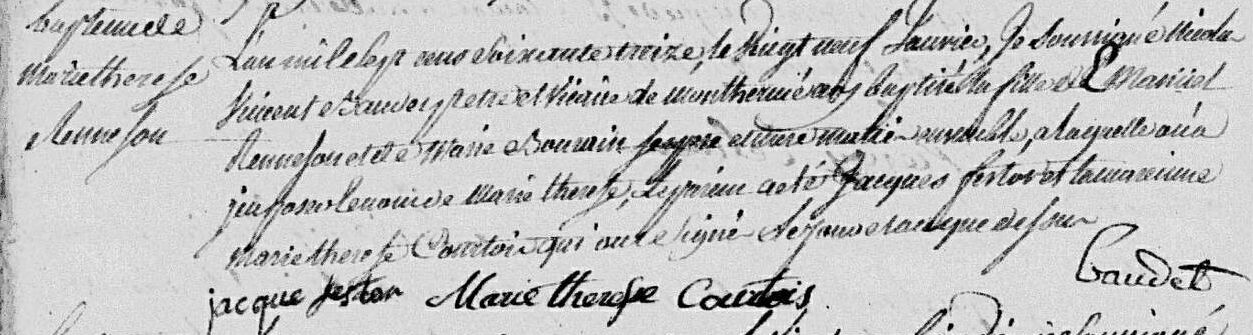 bapteme de
Marie therese
Rennesson
L'an mil sept cens soixante treize, le vingt neuf Janvier, Je soussigné Nicolas
Vincent Baudet pretre et vicaire de montherme ay baptisé la fille de Marciel
Rennesson et de Marie Bourain femme et mari ensemble, a laquelle on a
imposé le nom de Marie therese, le parein a été Jacques feston et la mareinne
Marie therese Courtois qui ont signé le jour et an que dessus
Baudet
jacque feston Marie therese Courtois